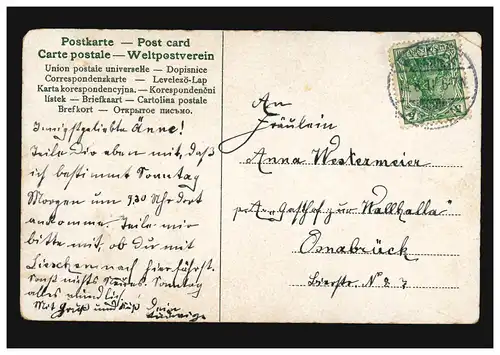 Postkarte — Post card
Carte postale — Weltpostverein
Union postale universelle — Dopisnice
Correspondenzkarte — Levelező-Lap
Karta korespondencyjna. — Korespondenční
lístek — Briefkaart — Cartolina postale
Brefkort — Открытое письмо.
Innigstgeliebte Änne!
Teile Dir eben mit, daß
ich bestimmt Sonntag
Morgen um 9.30 Uhr dort
ankomme. Teile mir
bitte mit, ob Du mit
Lieschen nach hier fährst.
Sonst nichts Neues. Sonntag
alles mündlich.
Mit Gruß und Kuß Dein
An
Fräulein
Anna Westermeier
p. Gasthof zur Wallhalla
Osnabrück
Bierstr. No 7